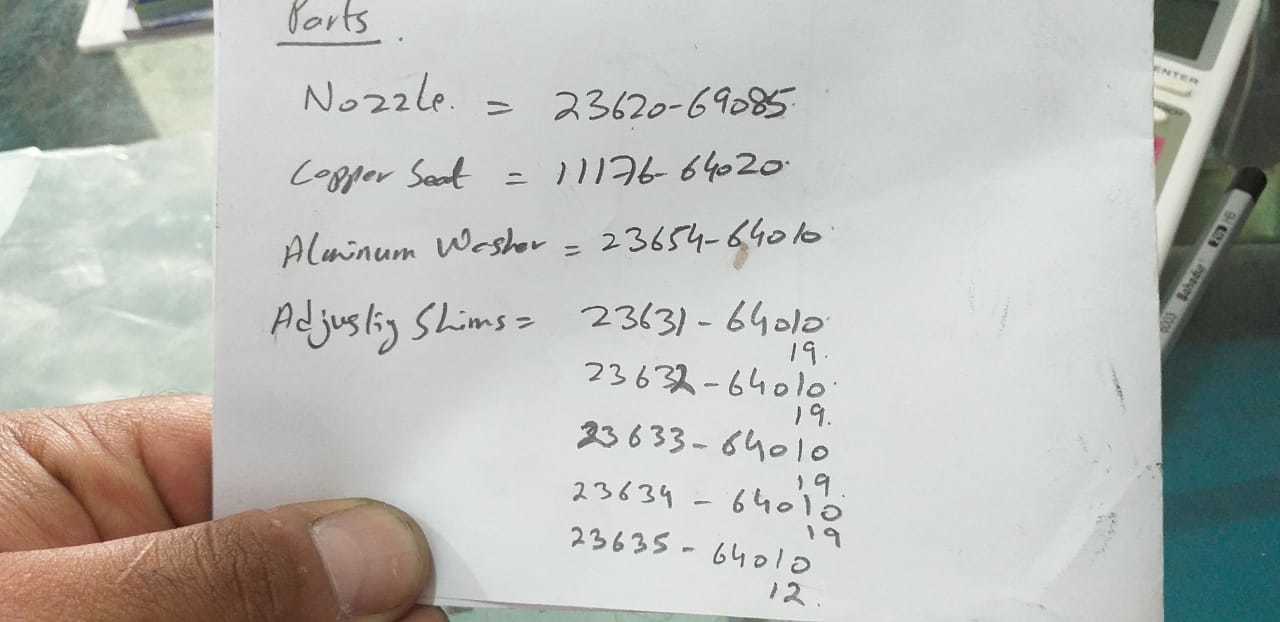 Parts.
Nozzle. = 23620-69085
Copper Seat = 11176-64020
Aluminum Washer = 23654-64010
Adjustig Shims = 23631-64010
19.
23632-64010
19.
23633-64010
19.
23634-64010
19
23635-64010
12.
ENTER